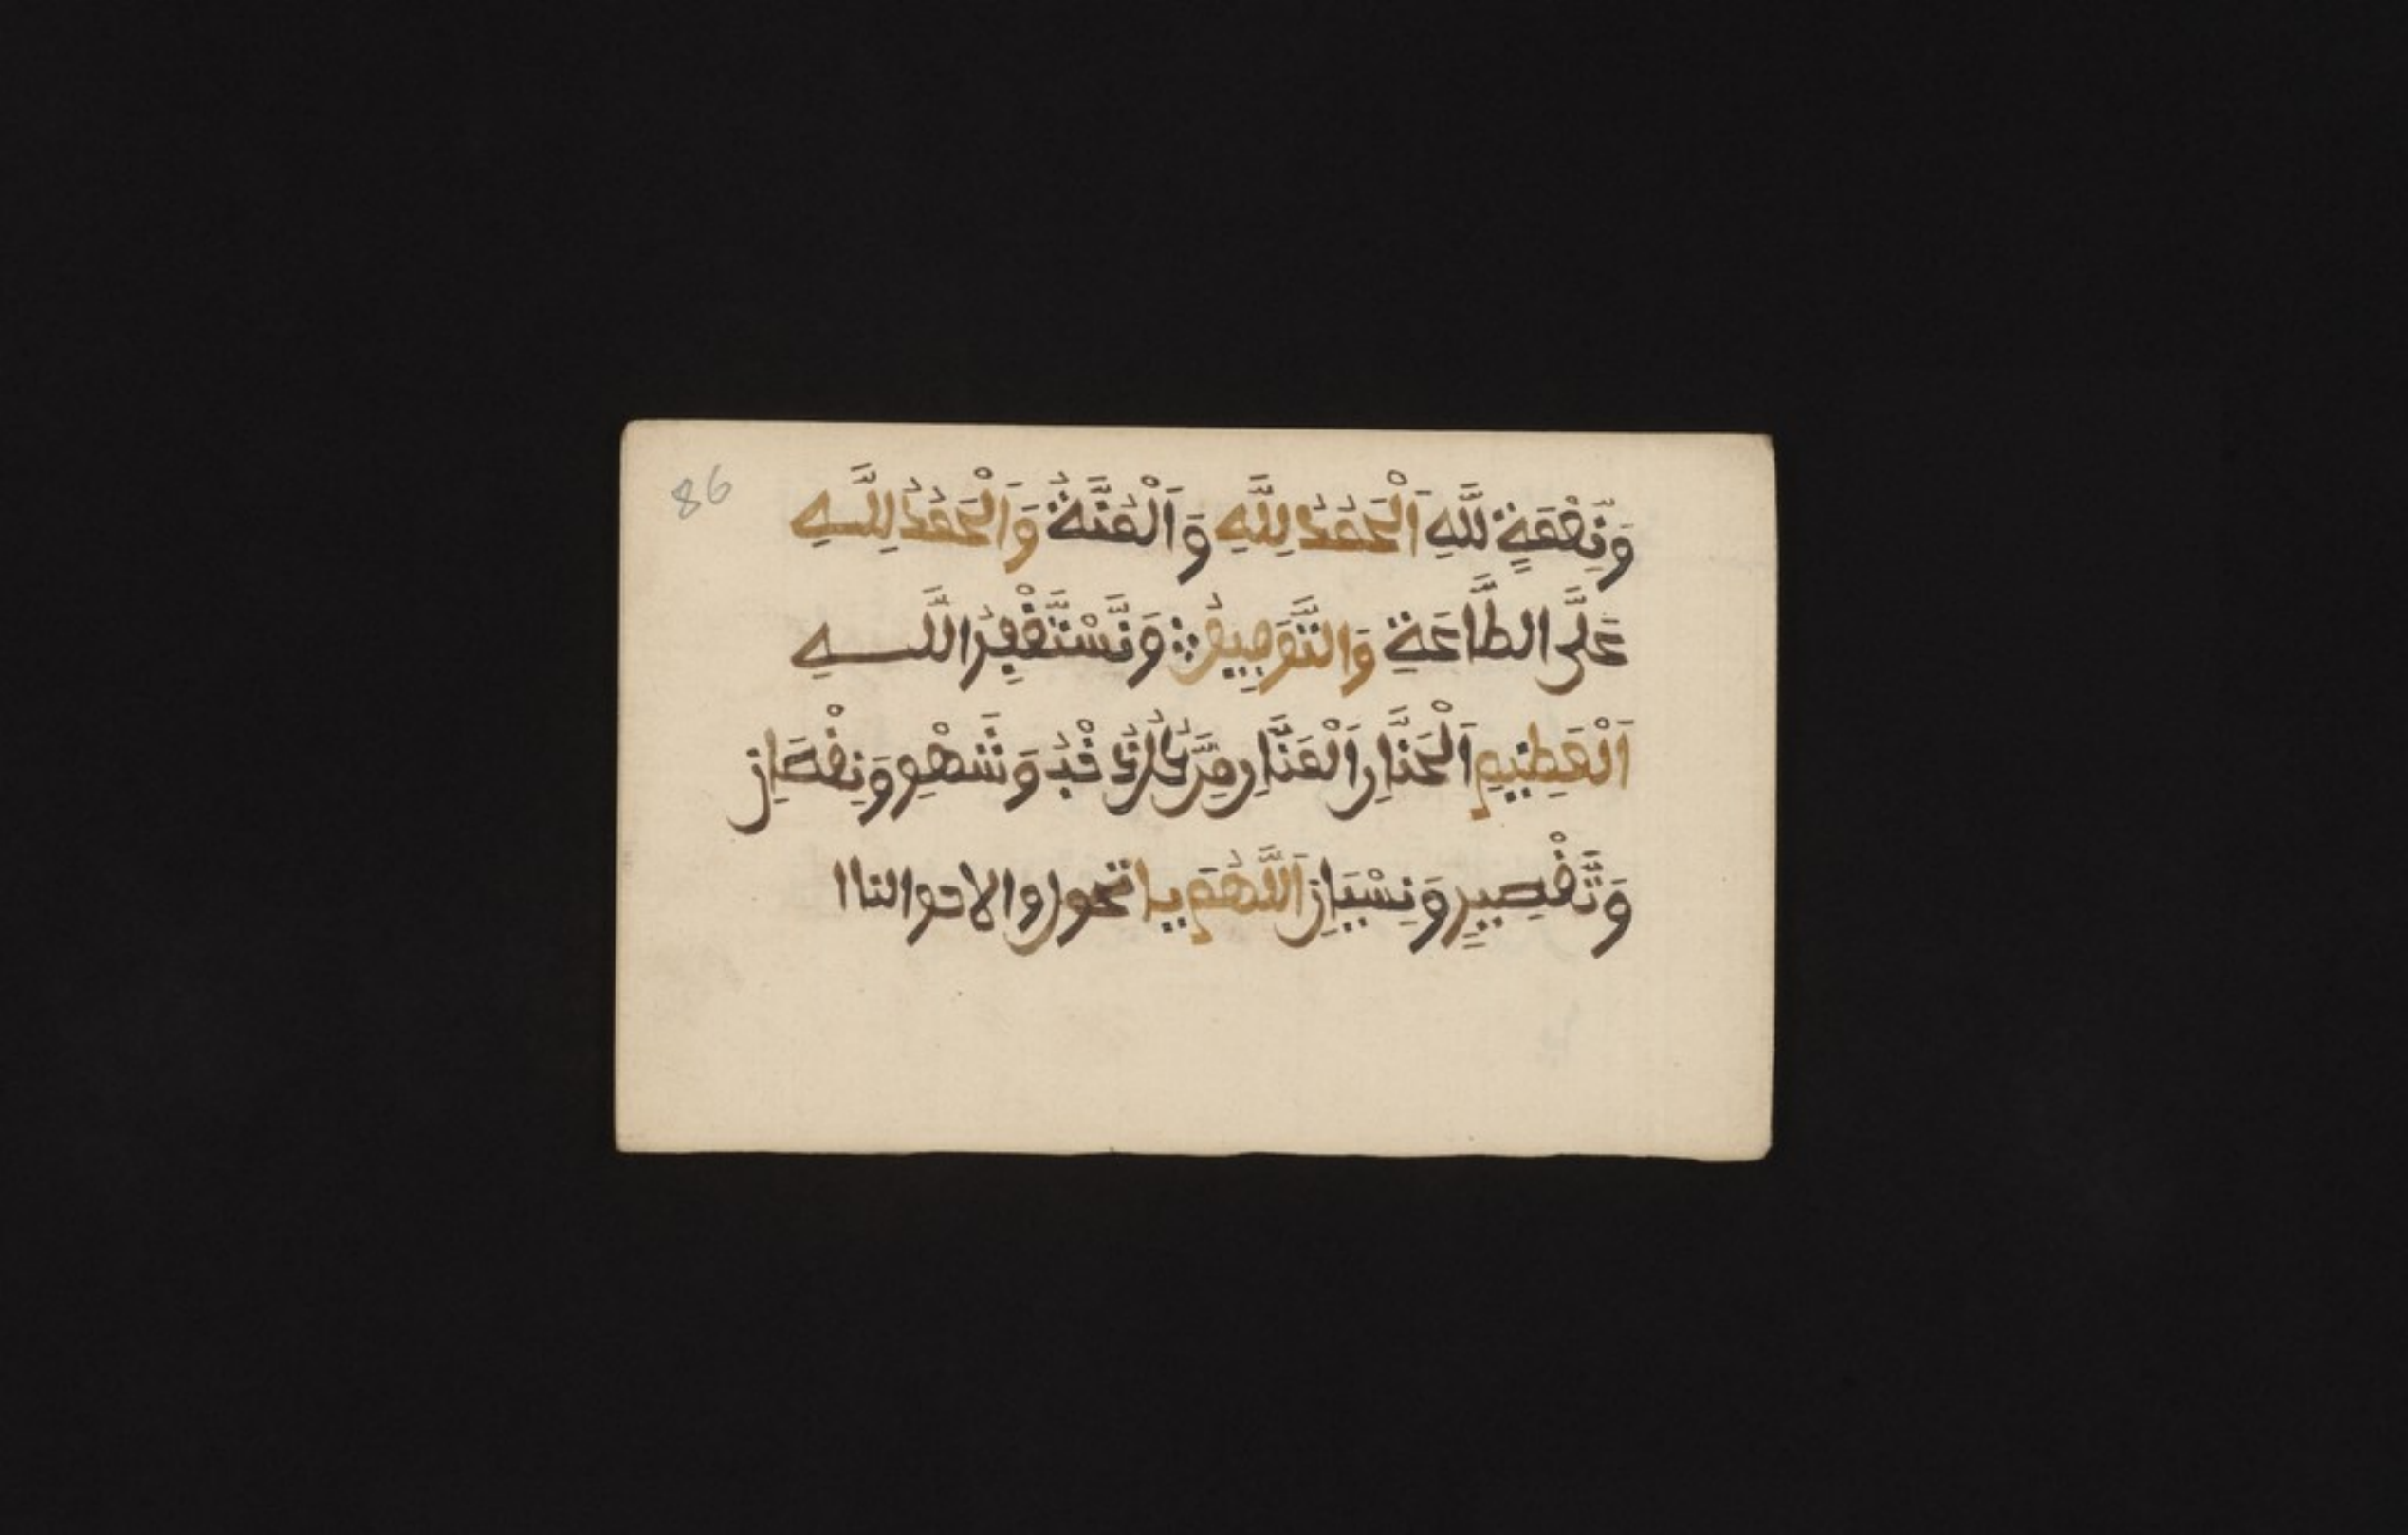 86
وَنِعْمَةٍ لِلَّهِ اَلْحَمْدُ لِلَّهِ وَالْمِنَّةُ وَالْحَمْدُ لِلَّهِ
عَلَى الطَّاعَةِ وَالتَّوْفِيقِ وَنَسْتَغْفِرُ اللَّه
اَلْعَظِيمِ اَلْحَنَّانِ اَلْمَنَّانِ مِن كُلِّ ذَنْبٍ وَسَهْوٍ وَنِقْصَانٍ
وَتَقْصِيرٍ وَنِسْيَانٍ اَللَّهُمَّ يا محول والاحوالنا ا